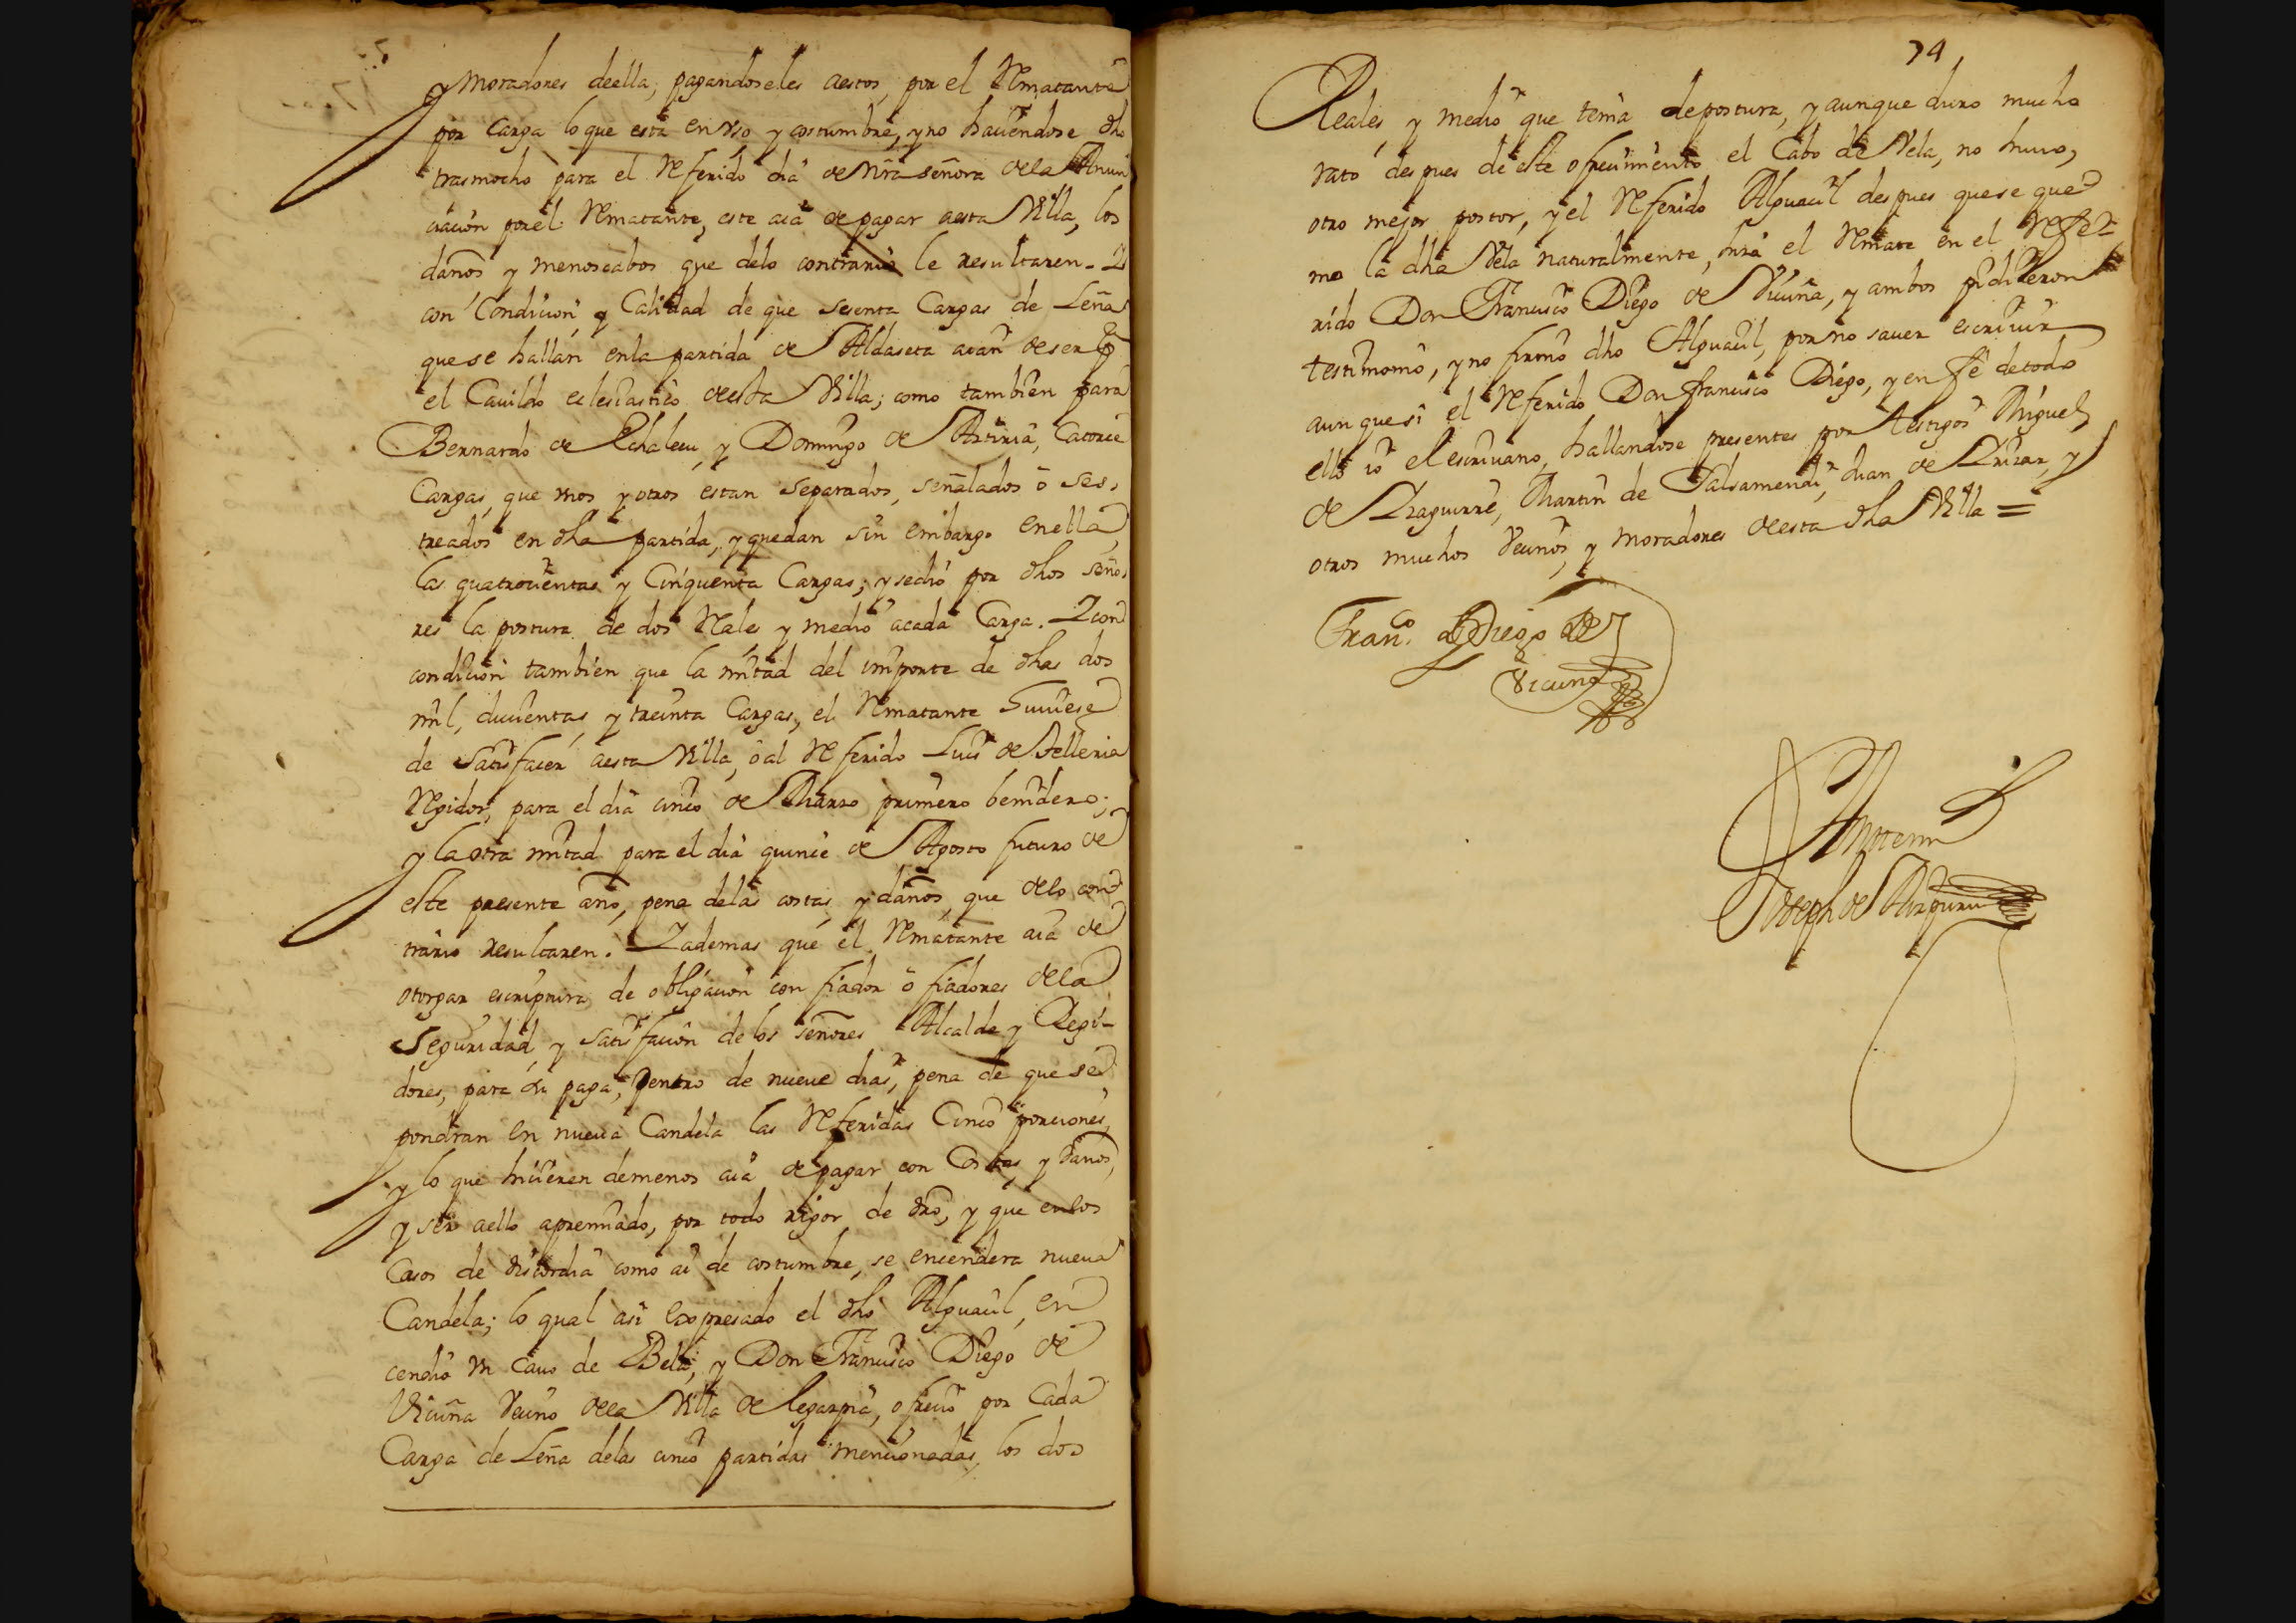 y moradores deella, pagandoseles aestos, por el Rematante
por carga lo que està en vso y costumbre, y no haviendose dho
trasmocho para el Referido dia de Nra señora dela Anun
ciacion por el Rematante, este aia de pagar aesta Villa, los
daños y menoscabos que delo contrario le resultaren. Y
con Condicion y Calidad de que sesenta Cargas de Leña
que se hallan enla partida de Aldaseta aian de ser p.ª
el Cavildo eclesiastico deesta Villa; como tambien para
Bernardo de Echaleeu, y Domingo de Artiria, Catorce
Cargas, que vnos y otros estan separados, señalados ò ses,
treados en dha partida, y quedan sin embargo enella
las quatrocientas y Cinquenta Cargas; y sediò por dhos seño,
res la postura de dos Reales y medio acada Carga. Y con
condicion tambien que la mitad del importe de dhas dos
mil, ducientas, y treinta Cargas, el Rematante huviese
de satisfacer aesta Villa, ò al Referido Luis de Telleria
Regidor, para el dia cinco de Marzo primero benidero;
y la otra mitad para el dia quince de Agosto futuro de
este presente año, pena delas costas, y daños, que delo con
trario resultaren. Y ademas que el Rematante aia de
otorgar escriptura de obligacion con fiador ò fiadores dela
seguridad, y satisfacion de los señores Alcalde y Regi-
dores, para su paga, dentro de nueve dias, pena de que se
pondran en nueva Candela las Referidas Cinco porciones,
y lo que huvieren demenos aia de pagar con Costas, y daños,
y ser aello apremiado, por todo rigor de dro, y que enlos
Casos de discordia como ai de costumbre, se encenderà nueva
Candela; lo qual asi expresado el dho Alguacil, en
cendiò vn cavo de Bela, y Don Francisco Diego de
Vicuña vecino dela Villa de Legazpia, ofreciò por Cada
Carga de Leña delas cinco partidas mencionadas, los dos
74
Reales, y medio que tenia depostura, y aunque duro mucho
rato despues de este ofrecimiento el Cabo de Vela, no huvo,
otro mejor postor, y el Referido Alguacil despues quese que
mo la dha Vela naturalmente, hizo el Remate en el Refe-
rido Don Francisco Diego de Vicuña, y ambos pidieron
testimonio, y no firmò dho Alguacil, por no saver escrivir
aunque si el Referido Don Francisco Diego, y en fè detodo
ello io el escrivano, hallandose presentes por testigos Miguel
de Yraguirre, Martin de Salsamendi, Juan de Yrizar, y
otros muchos vecinos, y moradores deesta dha Villa =
Fran.co Diego de
Vicuña
Antemi
Joseph de Aizpuru